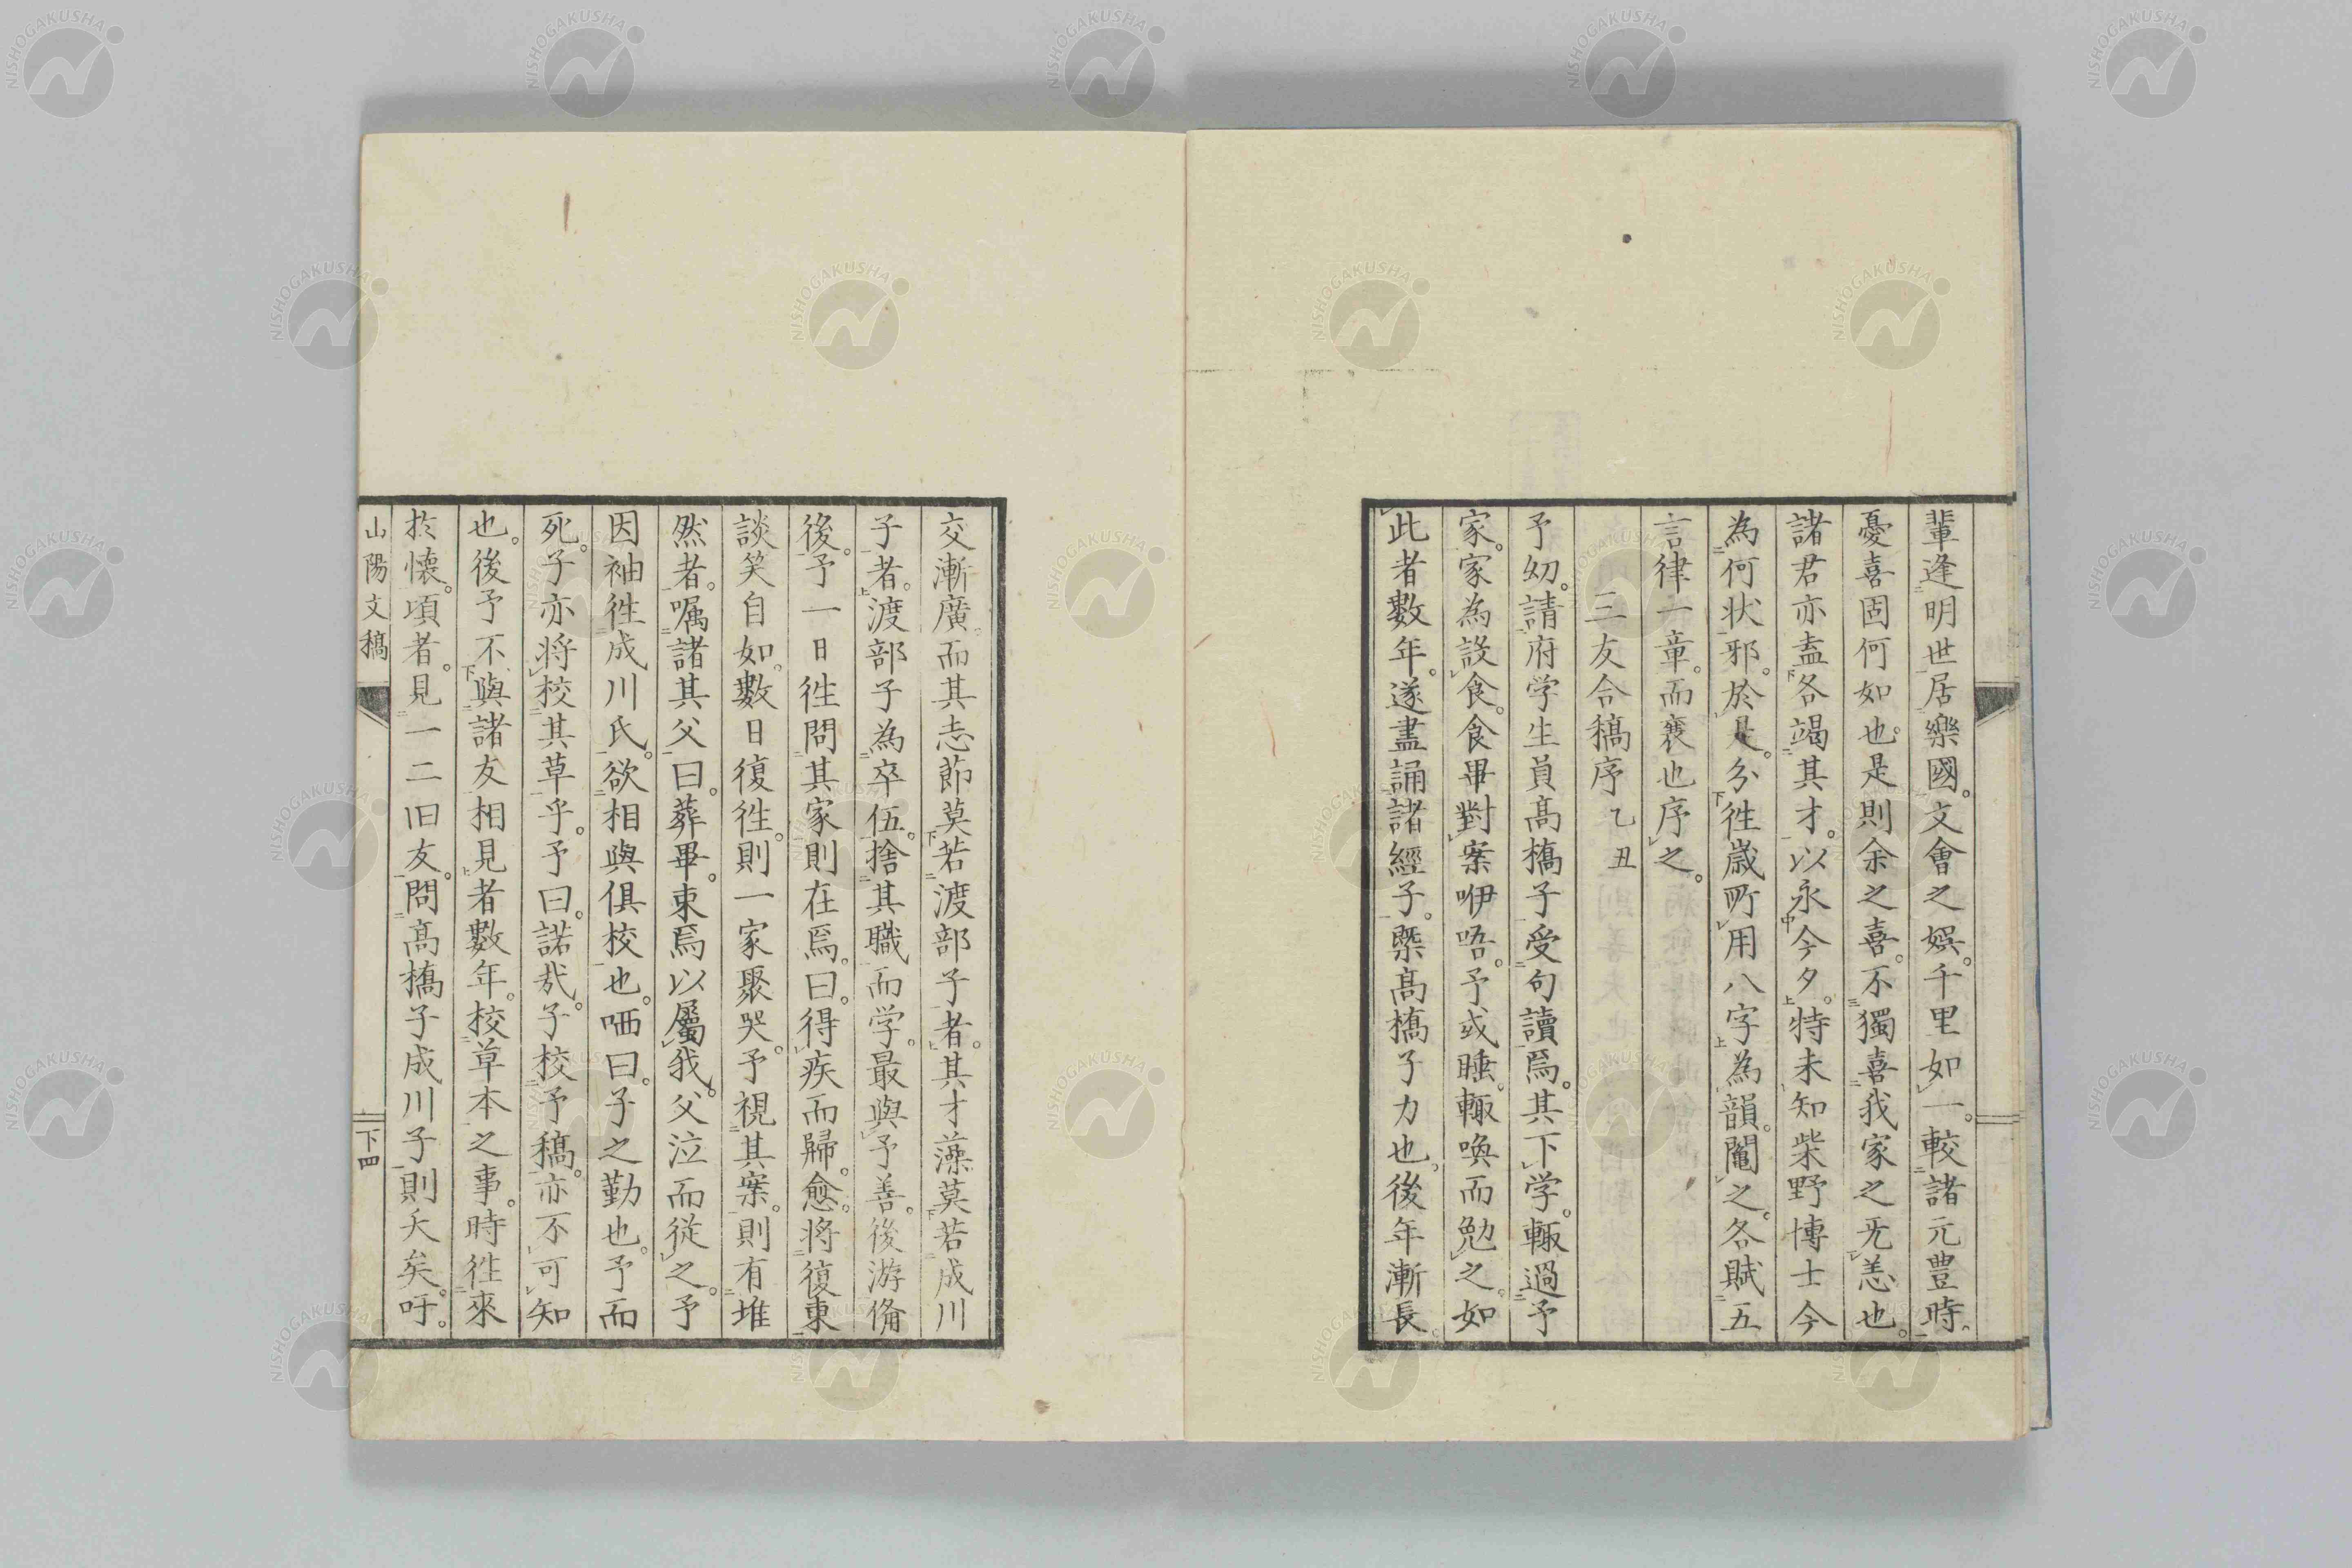 輩逢明世居樂國。文會之娯。千里如一。較諸元豊時。
憂喜固何如也。是則余之喜。不獨喜我家之无恙也。
諸君亦盍各竭其才。以永今夕。特未知柴野博士今
為何状邪。於是。分徃歳所用八字為韻。鬮之。各賦五
言律一章。而褒也序之。
三友合稿序 乙丑
予幼。請府学生員髙橋子受句讀焉。其下学。輙過予
家。家為設食。食畢對案咿唔。予或睡。輙喚而勉之。如
此者數年。遂盡誦諸經子。槩髙橋子力也。後年漸長。
交漸廣。而其志節莫若渡部子者。其才藻莫若成川
子者。渡部子為卒伍。捨其職而学。最與予善。後游脩
後。予一日徃問其家則在焉。曰。得疾而歸。愈。將復東
談笑自如。數日復徃。則一家聚哭。予視其案。則有堆
然者。嘱諸其父曰。葬畢。東焉以屬我。父泣而従之。予
因袖徃成川氏。欲相與俱校也。哂曰。子之勤也。予而
死。子亦将校其草乎。予曰。諾哉。子校予稿。亦不可知
也。後予不與諸友相見者數年。校草本之事。時徃來
扵懐。頃者。見一二旧友。問髙橋子成川子則夭矣。吁。
山陽文稿
下四